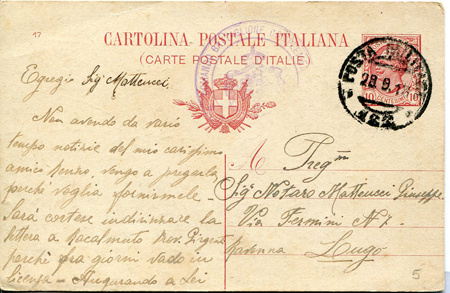 17
CARTOLINA POSTALE ITALIANA
(CARTE POSTALE D'ITALIE)
POSTA MILITARE
28 9 1
10 10
Egregio Sig Matteucci
Non avendo da vario
tempo notizie del mio carissimo
amico vengo a pregarla
perchè voglia fornirmele
Sarà cortese indirizzare la
lettera a Racalmuto Prov. Girgenti
perchè fra giorni vado in
Licenza - Augurando a Lei
A Pregm
Sig Notaro Matteucci Giuseppe
Via Fermini N 7.
Ravenna Lugo
5